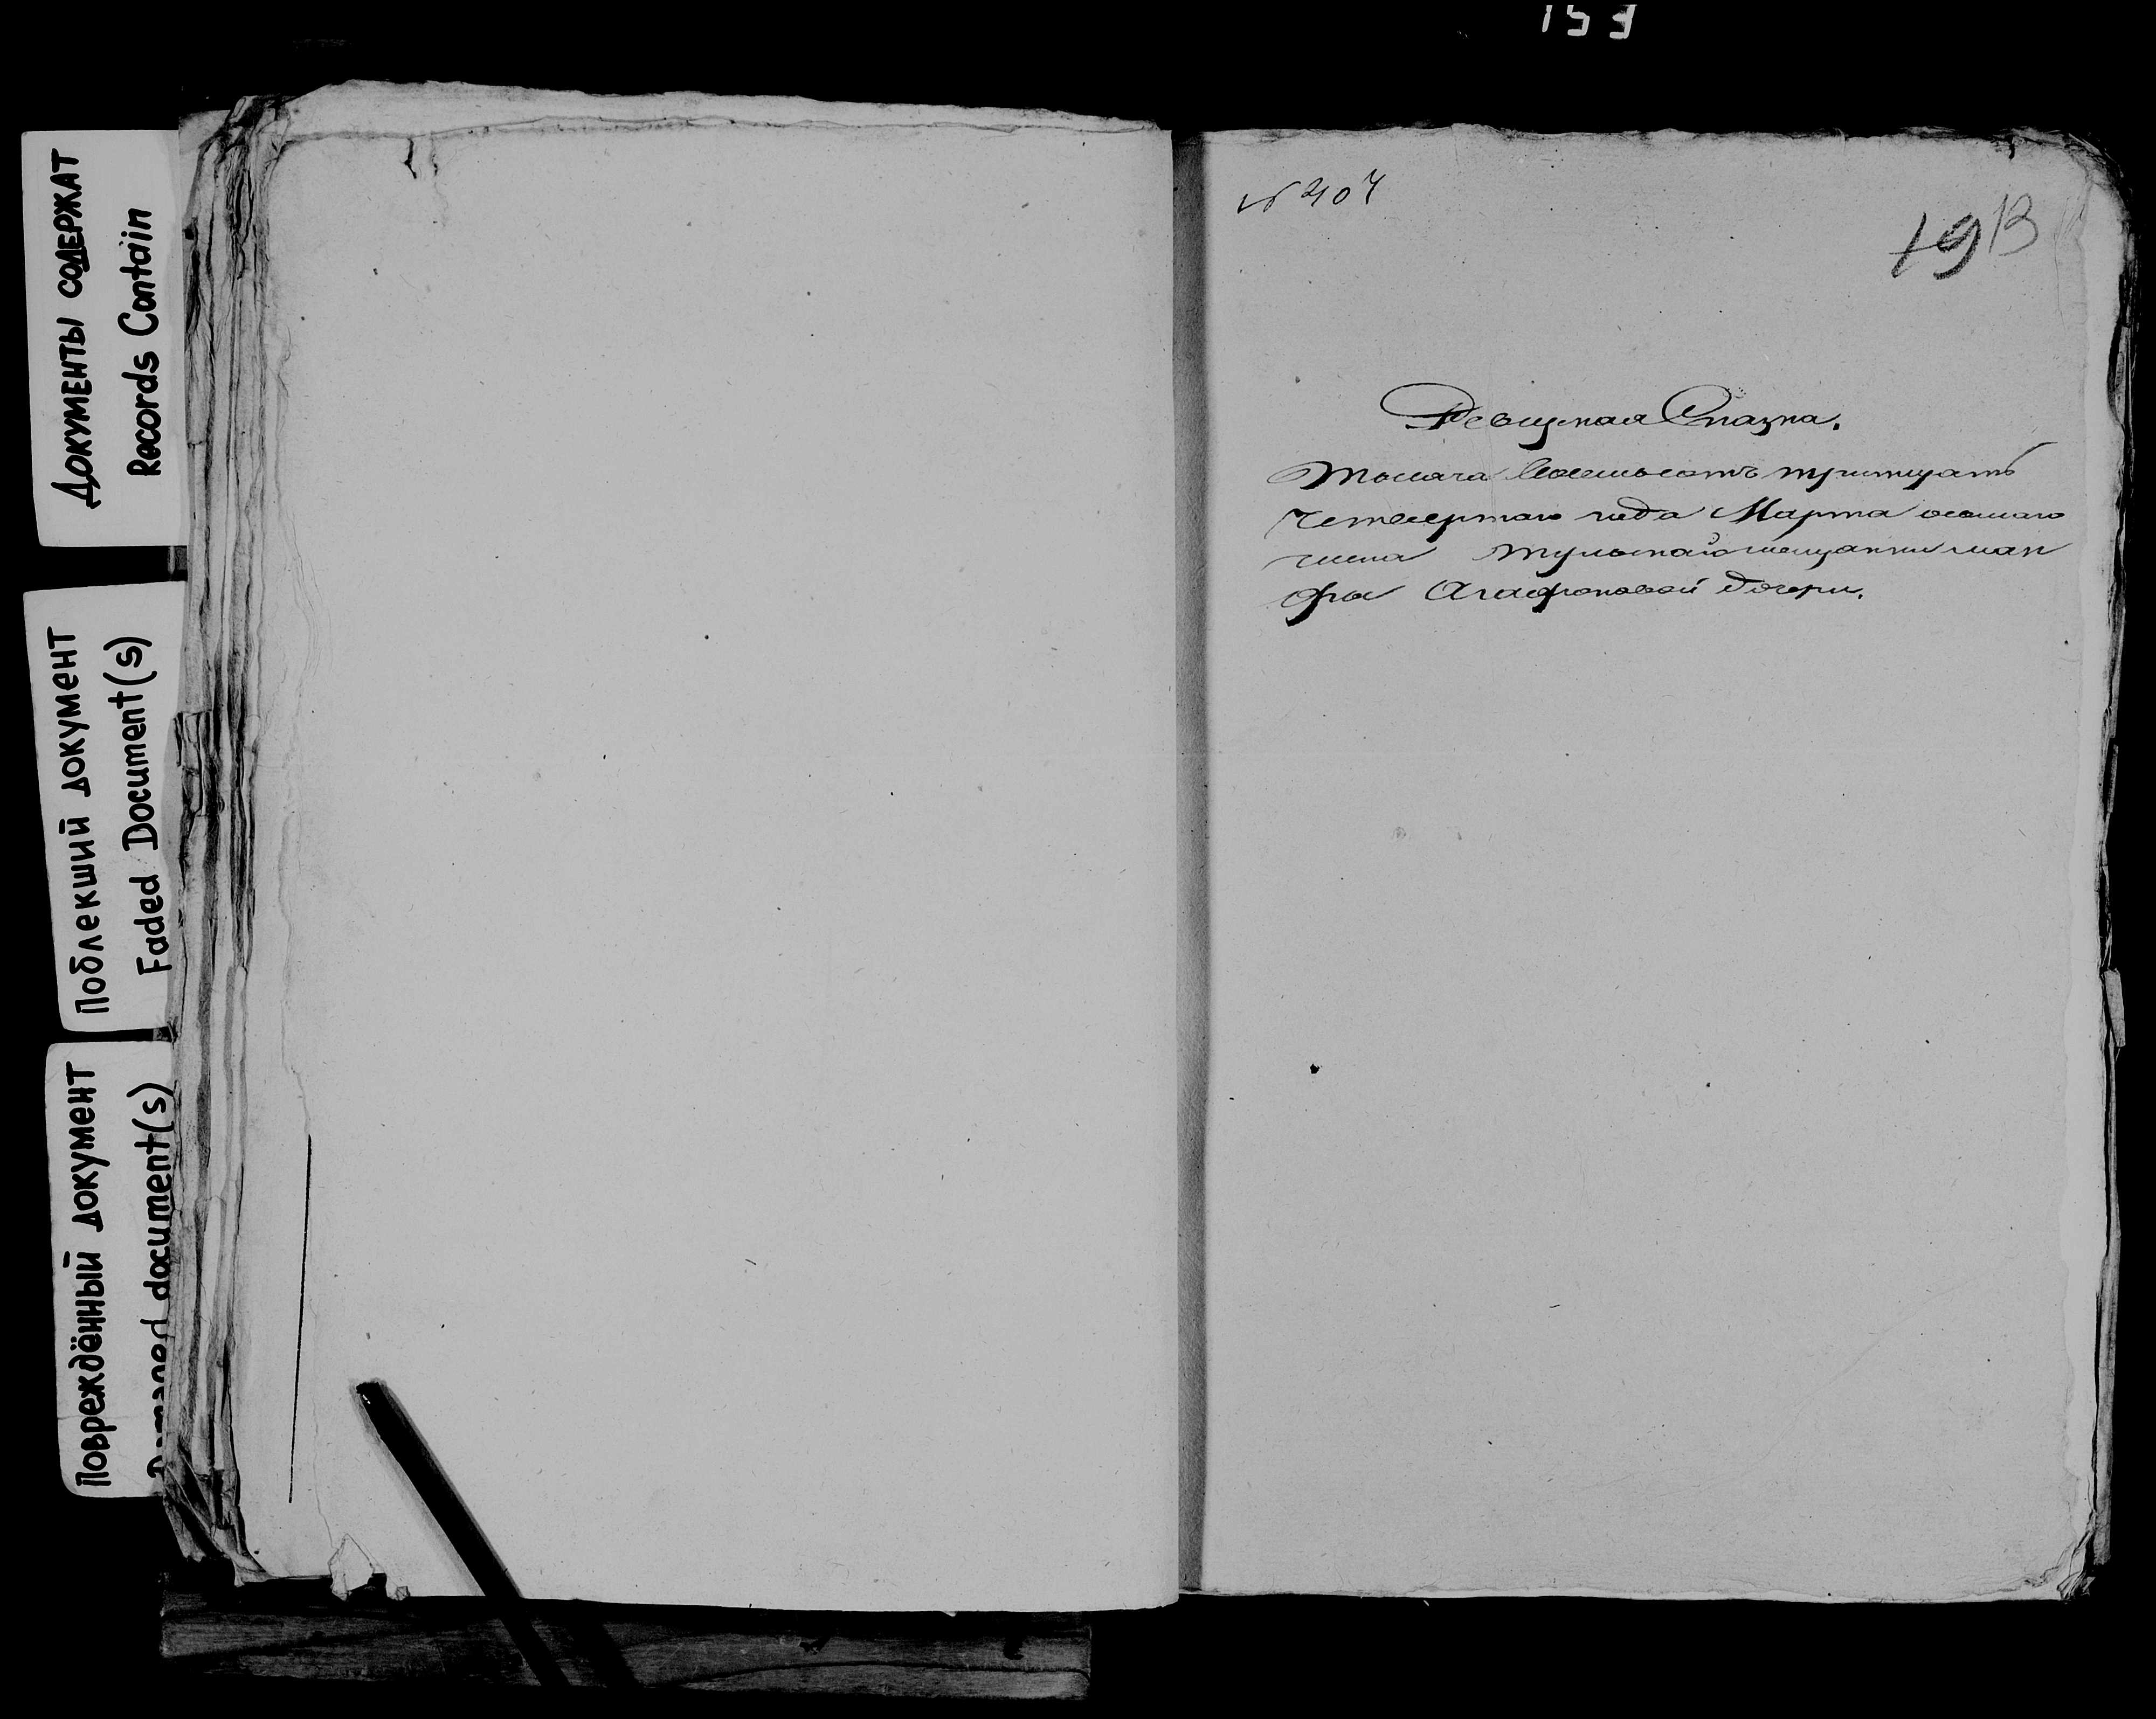 153
Документы содержат
Records Contain
Поблекший документ
Faded Document(s)
Повреждённый документ
Damaged document(s)
№ 407
19 13
Ревизская Сказка.
Тысяча Восемьсотъ тритцать
Четвертаго года Марта осмаго
числа Тульской мещанки Мар
фы Агафоновой дочери.